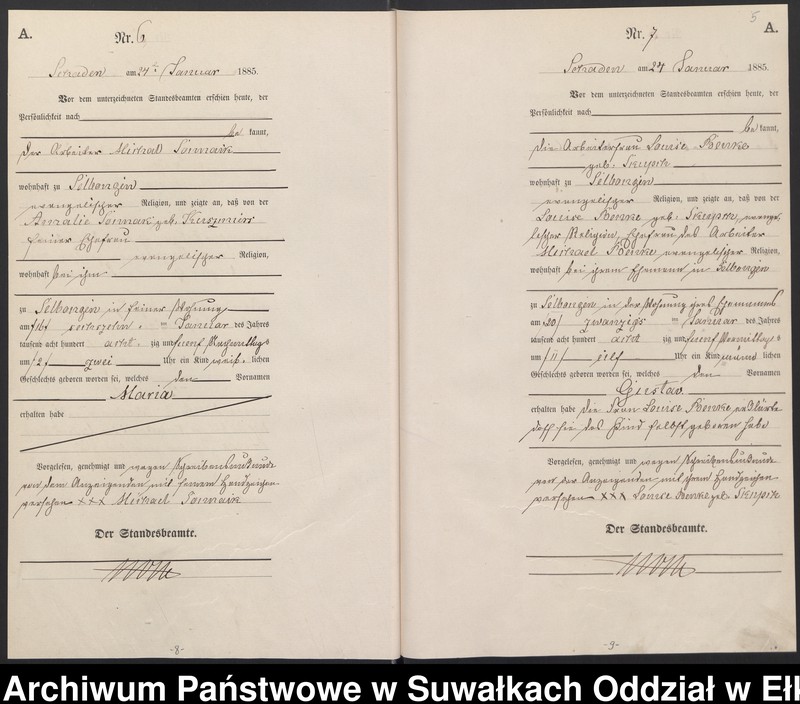 A.
Nr. 6
am 24 Januar 1885.
Vor dem unterzeichneten Standesbeamten erschien heute, der
Persönlichkeit nach
be kannt,
der Arbeiter Michael
wohnhaft zu Selbongen
evangelischer Religion, und zeigte an, daß von der
Amalie geb.
seiner Ehefrau
evangelischer Religion,
wohnhaft bei ihm
zu Selbongen in seiner Wohnung
am 16 sechszehn ten Januar des Jahres
tausend acht hundert acht zig und fünf Nachmittags
um 2 zwei Uhr ein Kind weib lichen
Geschlechts geboren worden sei, welches den Vornamen
Maria
erhalten habe
Vorgelesen, genehmigt und wegen Schreibensunkunde
von dem Anzeigenden mit seinem Handzeichen
versehen XXX Michael
Der Standesbeamte.
-8-
5
A.
Nr. 7
am 24 Januar 1885.
Vor dem unterzeichneten Standesbeamten erschien heute, der
Persönlichkeit nach
be kannt,
die Arbeiterfrau Louise
geb.
wohnhaft zu Selbongen
evangelischer Religion, und zeigte an, daß von der
Louise geb. evange-
lischer Religion, Ehefrau des Arbeiter
Michael evangelischer Religion,
wohnhaft bei ihrem Ehemann in Selbongen
zu Selbongen in der Wohnung ihres Ehemannes
am 20 zwanzigs ten Januar des Jahres
tausend acht hundert acht zig und fünf Vormittags
um 11 elf Uhr ein Kind männ lichen
Geschlechts geboren worden sei, welches den Vornamen
Gustav
erhalten habe die Frau Louise erklärte
daß sie das Kind selbst geboren habe
Vorgelesen, genehmigt und wegen Schreibensunkunde
von der Anzeigenden mit ihrem Handzeichen
versehen XXX Louise geb.
Der Standesbeamte.
-9-
Archiwum Państwowe w Suwałkach Oddział w Eł